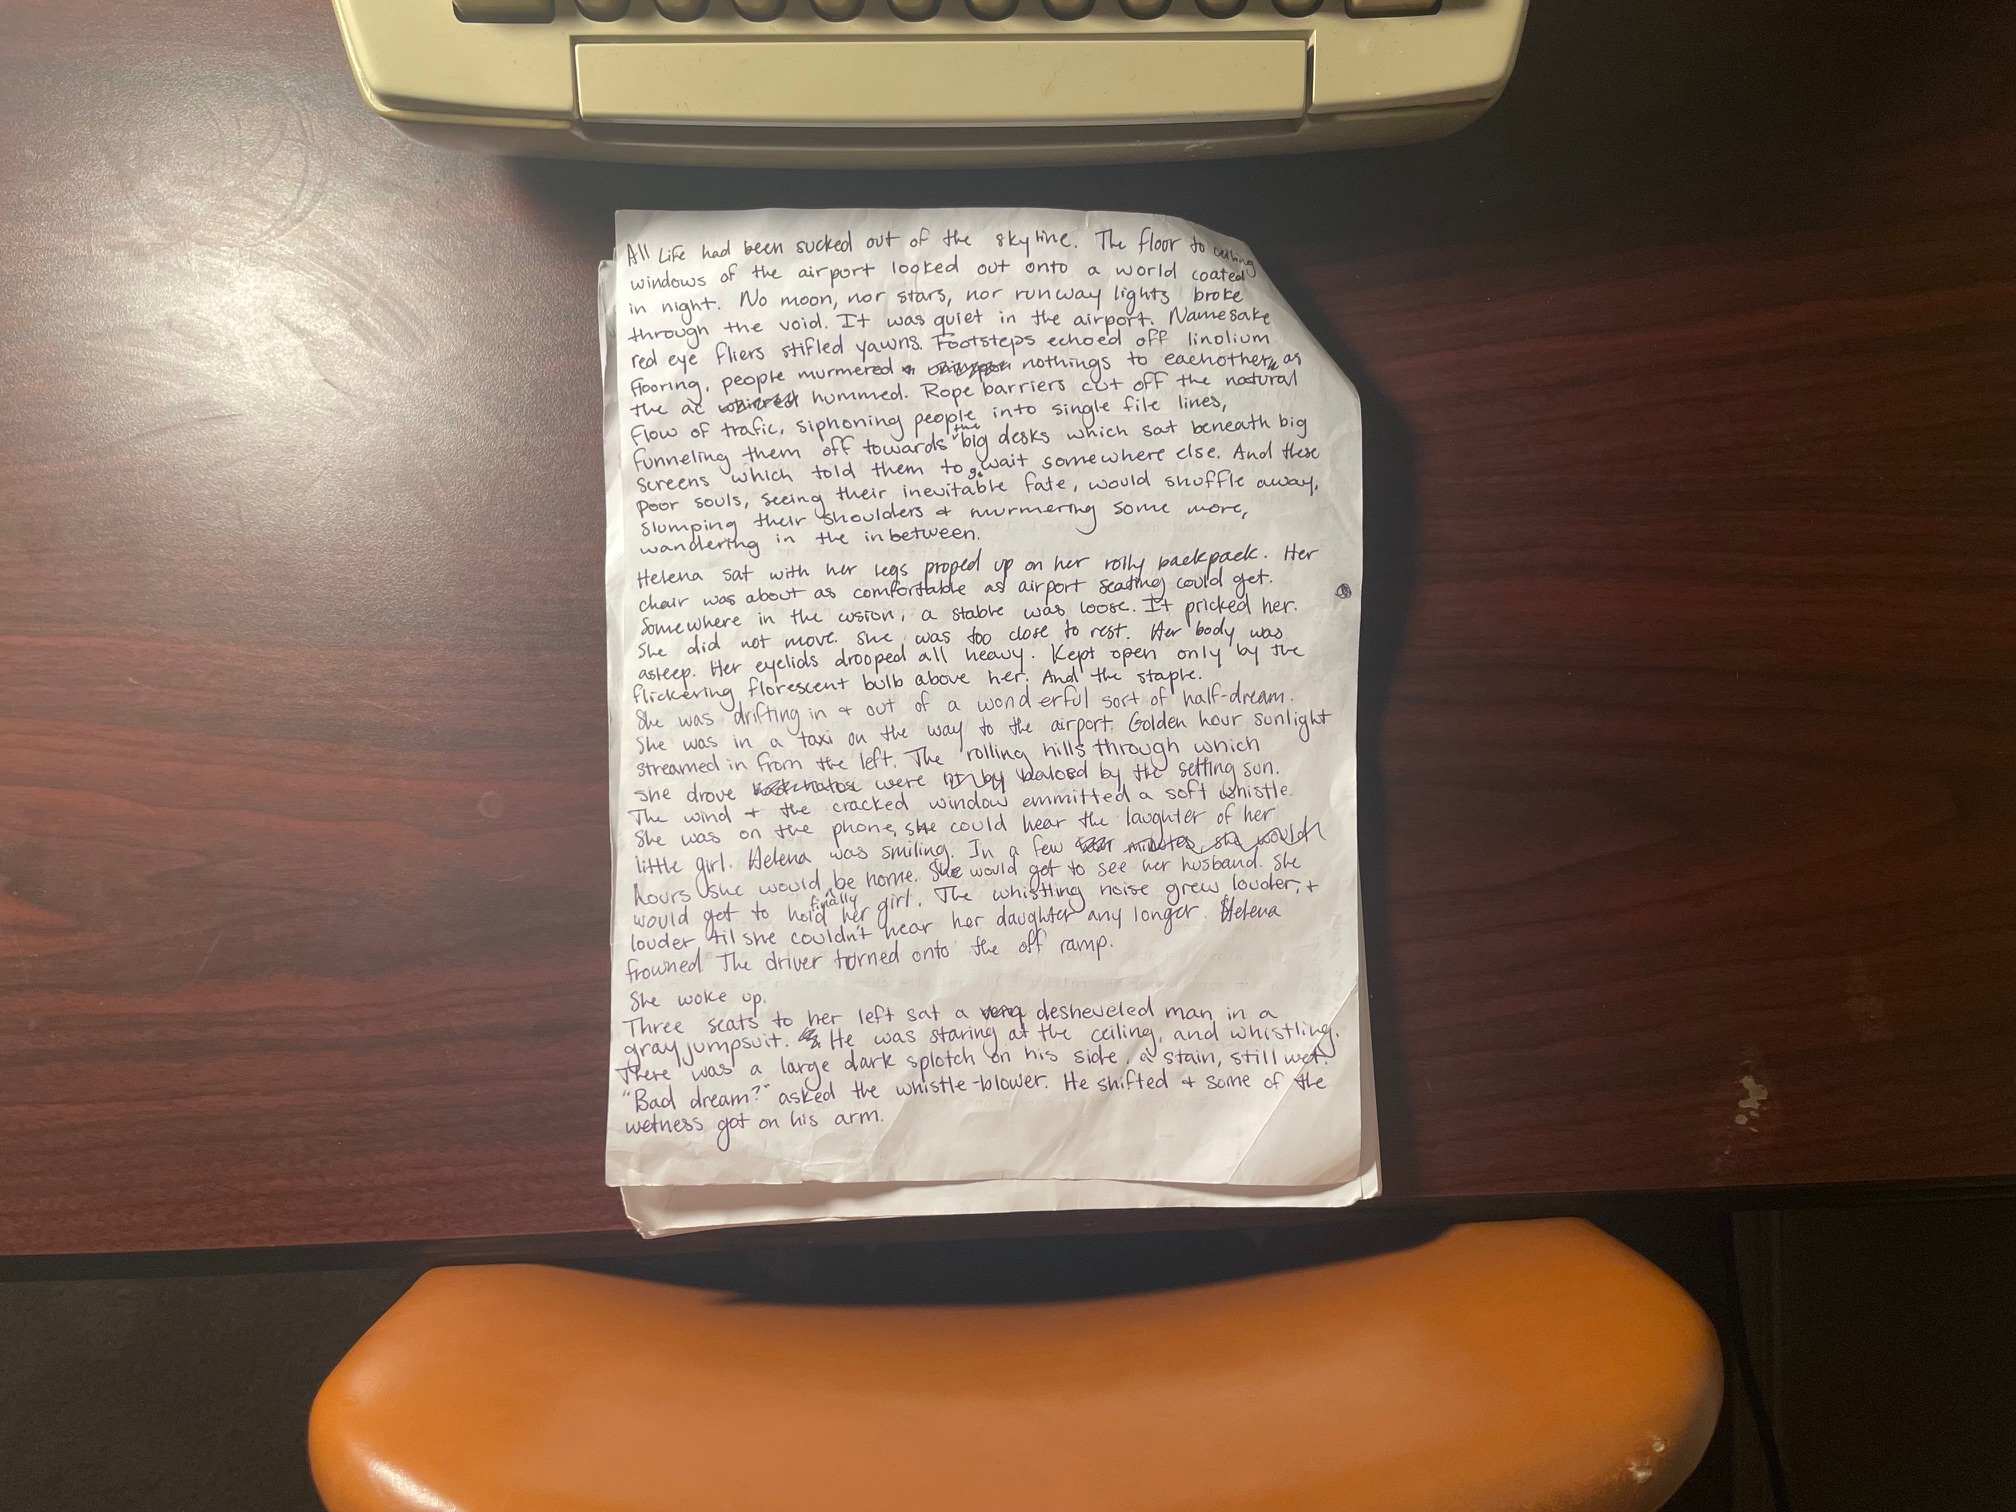 All Life had been sucked out of the skyline. The floor to ceiling
windows of the airport looked out onto a world coated
in night. No moon, nor stars, nor runway lights broke
through the void. It was quiet in the airport. Namesake
red eye fliers stifled yawns. Footsteps echoed off linolium
flooring, people murmered nothings to eachother, as
the ac hummed. Rope barriers cut off the natural
flow of trafic, siphoning people into single file lines,
funneling them off towards the big desks which sat beneath big
screens which told them to go wait somewhere else. And these
poor souls, seeing their inevitable fate, would shuffle away,
slumping their shoulders & murmering some more,
wandering in the inbetween.
Helena sat with her legs proped up on her rolly backpack. Her
chair was about as comfortable as airport seating could get.
Somewhere in the cusion, a stable was loose. It pricked her.
She did not move. She was too close to rest. Her body was
asleep. Her eyelids drooped all heavy. Kept open only by the
flickering florescent bulb above her. And the staple.
She was drifting in & out of a wonderful sort of half-dream.
She was in a taxi on the way to the airport. Golden hour sunlight
streamed in from the left. The rolling hills through which
she drove were by haloed by the setting sun.
The wind & the cracked window emmitted a soft whistle.
She was on the phone, she could hear the laughter of her
little girl. Helena was smiling. In a few minutes she would
hours she would be home. She would get to see her husband. She
would get to finally hold her girl. The whistling noise grew louder, &
louder til she couldn't hear her daughter any longer. Helena
frowned. The driver turned onto the off ramp.
She woke up.
Three seats to her left sat a very desheveled man in a
gray jumpsuit. He was staring at the ceiling, and whistling.
There was a large dark splotch on his side, a stain, still wet.
"Bad dream?" asked the whistle-blower. He shifted & some of the
wetness got on his arm.